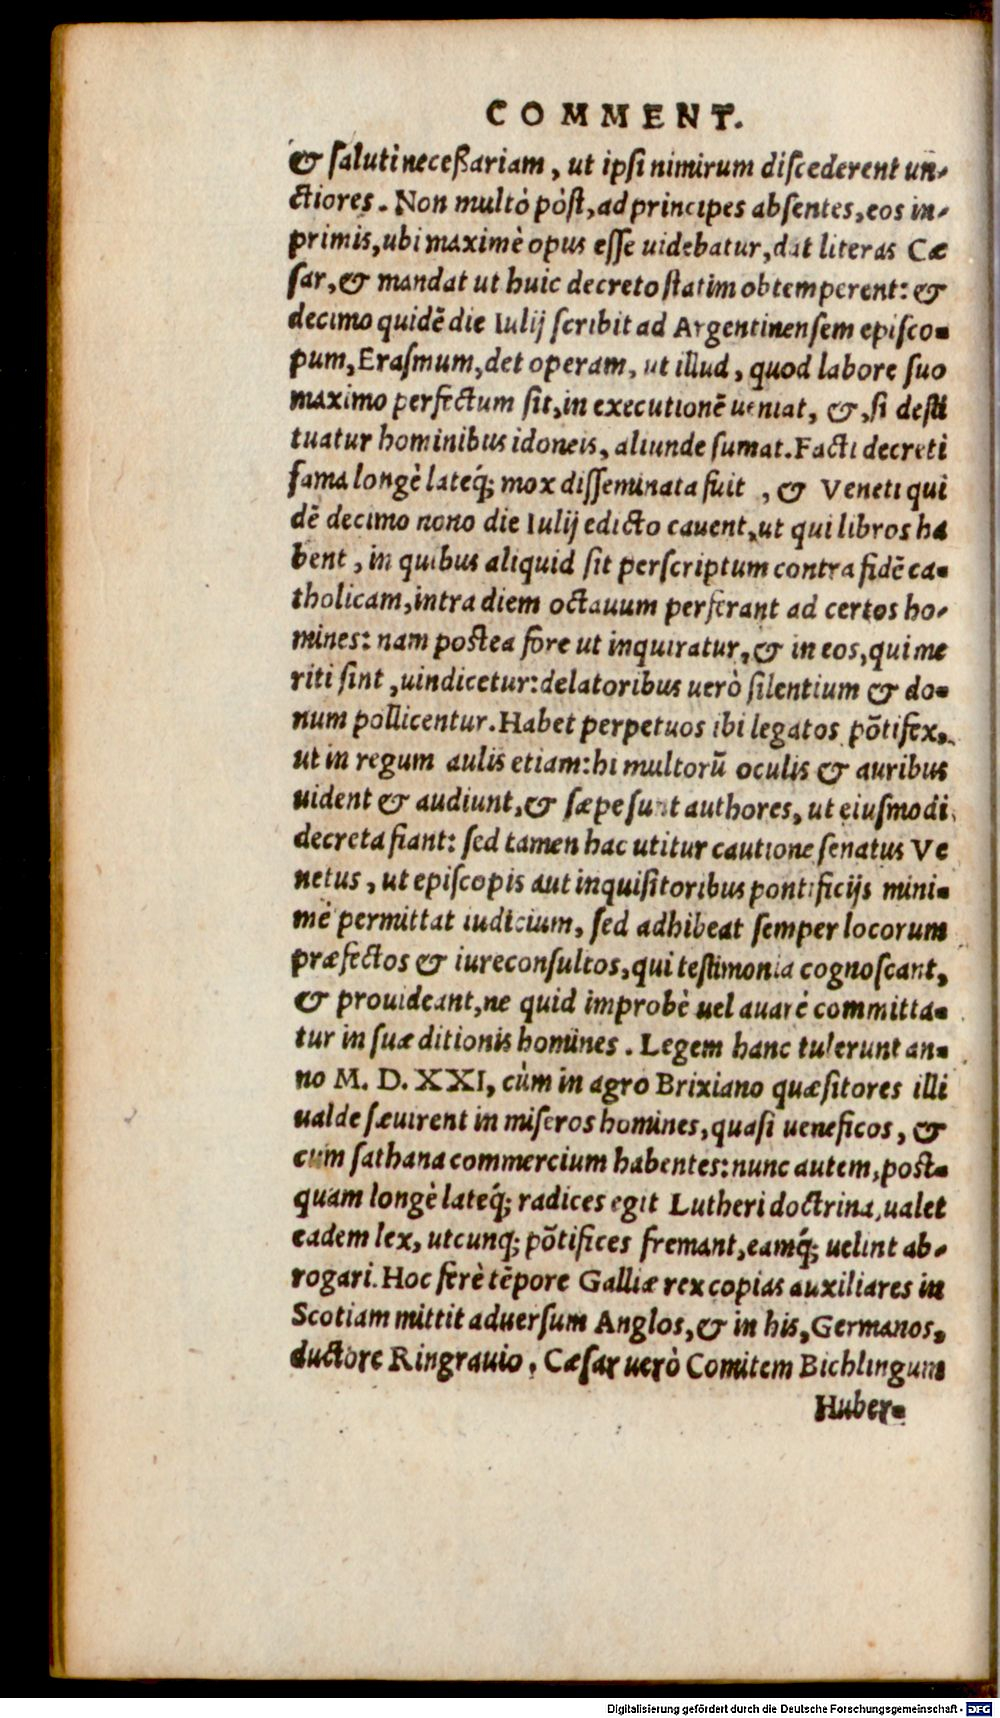 COMMENT.
& saluti neceßariam, ut ipsi nimirum discederent un-
ctiores. Non multò pòst, ad principes absentes, eos in-
primis, ubi maximè opus esse uidebatur, dat literas Cæ
sar, & mandat ut huic decreto statim obtemperent: &
decimo quidẽ die Iulij scribit ad Argentinensem episco-
pum, Erasmum, det operam, ut illud, quod labore suo
maximo perfectum sit, in executionẽ ueniat, &, si desti
tuatur hominibus idoneis, aliunde sumat. Facti decreti
fama longè lateq́; mox disseminata fuit, & Veneti qui
dẽ decimo nono die Iulij edicto cauent, ut qui libros ha
bent, in quibus aliquid sit perscriptum contra fidẽ ca-
tholicam, intra diem octauum perferant ad certos ho-
mines: nam postea fore ut inquiratur, & in eos, qui me
riti sint, uindicetur: delatoribus uerò silentium & do-
num pollicentur. Habet perpetuos ibi legatos põtifex,
ut in regum aulis etiam: hi multorũ oculis & auribus
uident & audiunt, & sæpe sunt authores, ut eiusmodi
decreta fiant: sed tamen hac utitur cautione senatus Ve
netus, ut episcopis aut inquisitoribus pontificijs mini-
mè permittat iudicium, sed adhibeat semper locorum
præfectos & iureconsultos, qui testimonia cognoscant,
& prouideant, ne quid improbè uel auarè committa-
tur in suæ ditionis homines. Legem hanc tulerunt an-
no M. D. XXI, cùm in agro Brixiano quæsitores illi
ualde sæuirent in miseros homines, quasi ueneficos, &
cum sathana commercium habentes: nunc autem, post-
quam longè lateq́; radices egit Lutheri doctrina, ualet
eadem lex, utcunq; põtifices fremant, eamq́; uelint ab-
rogari. Hoc ferè tẽpore Galliæ rex copias auxiliares in
Scotiam mittit aduersum Anglos, & in his, Germanos,
ductore Ringrauio. Cæsar uerò Comitem Bichlingum
Huber-
Digitalisierung gefördert durch die Deutsche Forschungsgemeinschaft - DFG